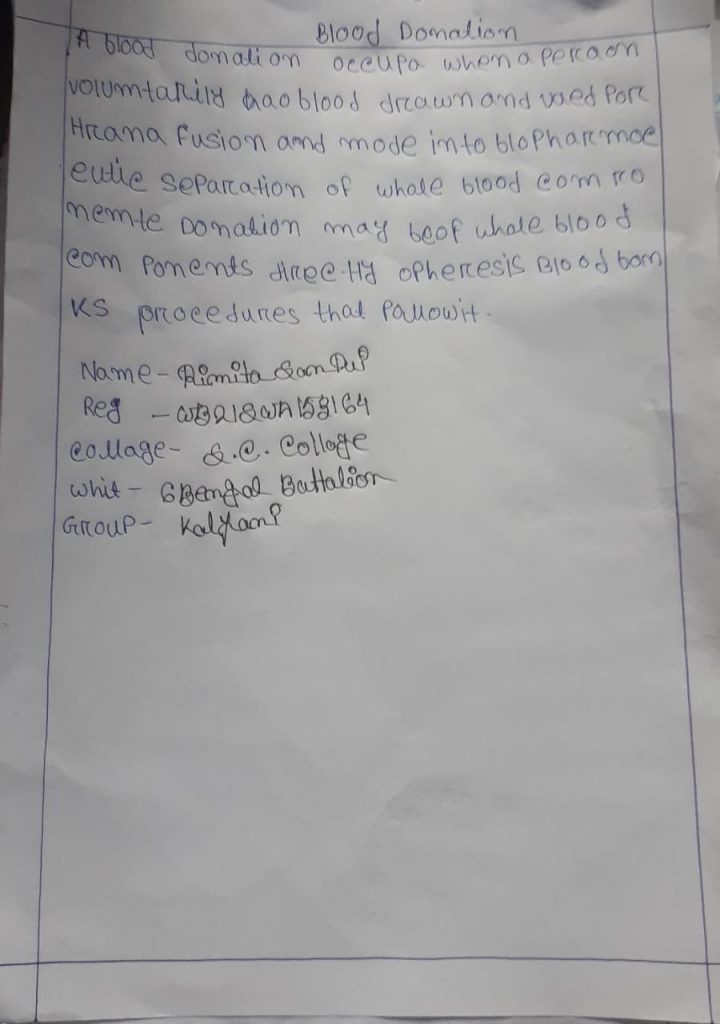 Blood Donalion
A blood donalion occupa when a percaon
volumtarily haoblood drcawn and vaed forc
Hrcana fusion amd mode into bloPharcmoc
eutic separcation of whole blood com ro
nemte Donalion may beof whole blood
com ponents direc Hly opherresis Blood bam
KS procedures that Pallowit.
Name - Rimita
Reg - WB21SWA153164
Collage - S.C. College
Whit - 6Bengal Battalion
Group - Kalyani